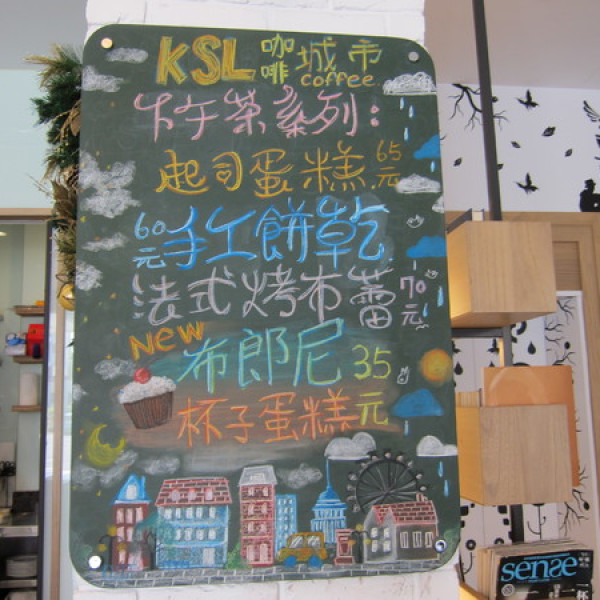 KSL 咖啡城市
coffee
下午茶系列:
起司蛋糕 65元
60元 手工餅乾
法式烤布蕾 70元
New 布郎尼 35元
杯子蛋糕
sense